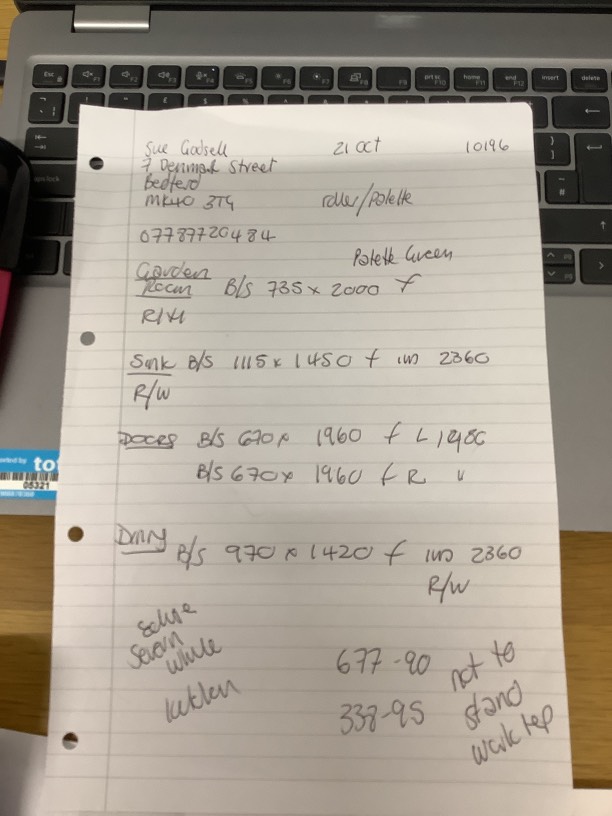 Sue Godsell 21 Oct 10196
7 Denmark Street
Bedford
MK40 3TG roller/Palette
07787720484
Palette Green
Garden
Room B/S 735 x 2000 f
R/W
Sink B/S 1115 x 1450 f 2360
R/W
DOORS B/S 670 x 1960 f L
B/S 670 x 1960 f R
B/S 970 x 1420 f 2360
R/W
677-90 not to
338-95 stand
work top
Esc F1 F2 F3 F4 F5 F6 F7 F8 F9 prt sc F10 home F11 end F12 insert delete
caps lock
to
05321